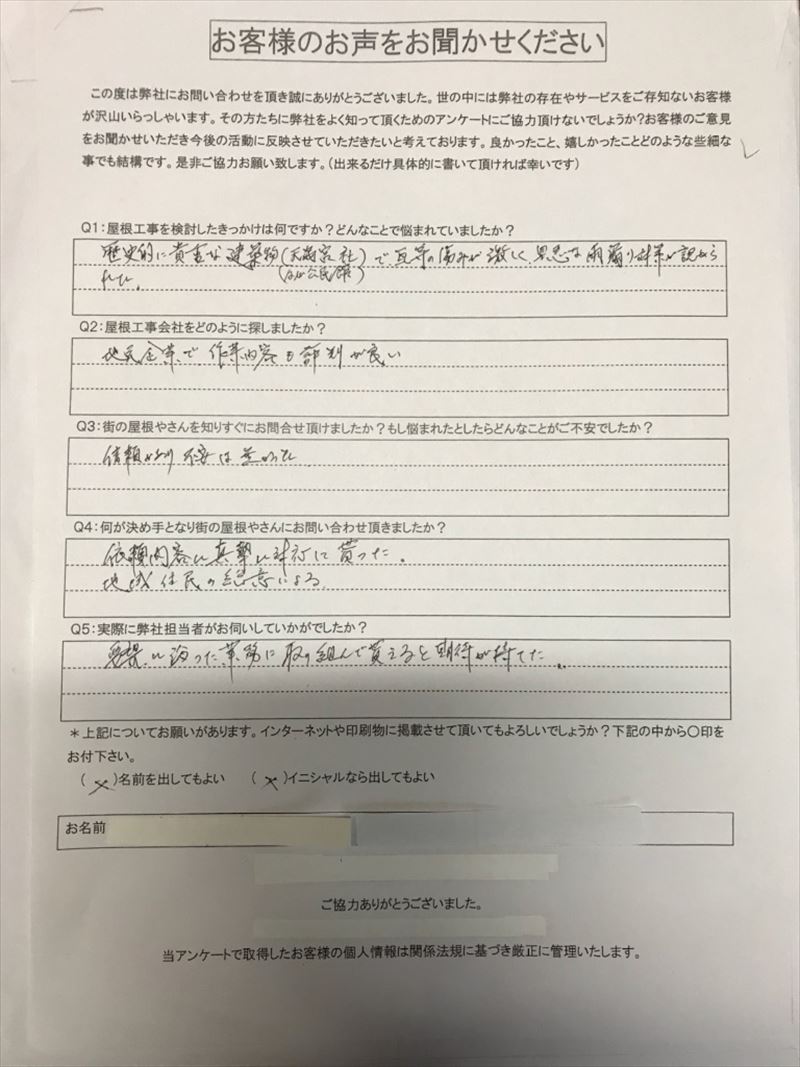 お客様のお声をお聞かせください
この度は弊社にお問い合わせを頂き誠にありがとうございました。世の中には弊社の存在やサービスをご存知ないお客様
が沢山いらっしゃいます。その方たちに弊社をよく知って頂くためのアンケートにご協力頂けないでしょうか?お客様のご意見
をお聞かせいただき今後の活動に反映させていただきたいと考えております。良かったこと、嬉しかったことどのような些細な
事でも結構です。是非ご協力お願い致します。(出来るだけ具体的に書いて頂ければ幸いです)
Q1:屋根工事を検討したきっかけは何ですか?どんなことで悩まれていましたか?
歴史的に貴重な建築物(天満宮社)で、瓦等の傷みが激しく、早急な雨漏り対策が認めら
(及び公民館)
れた。
Q2:屋根工事会社をどのように探しましたか?
地元企業で、作業内容も評判が良い
Q3:街の屋根やさんを知りすぐにお問合せ頂けましたか?もし悩まれたとしたらどんなことがご不安でしたか?
信頼があり不安は
Q4:何が決め手となり街の屋根やさんにお問い合わせ頂きましたか?
依頼内容に真摯に対応して貰った。
地域住民の総意による
Q5:実際に弊社担当者がお伺いしていかがでしたか?
に沿った業務に取り組んで貰えると期待が持てた。
*上記についてお願いがあります。インターネットや印刷物に掲載させて頂いてもよろしいでしょうか?下記の中から〇印を
お付下さい。
(×)名前を出してもよい (×)イニシャルなら出してもよい
お名前
ご協力ありがとうございました。
当アンケートで取得したお客様の個人情報は関係法規に基づき厳正に管理いたします。